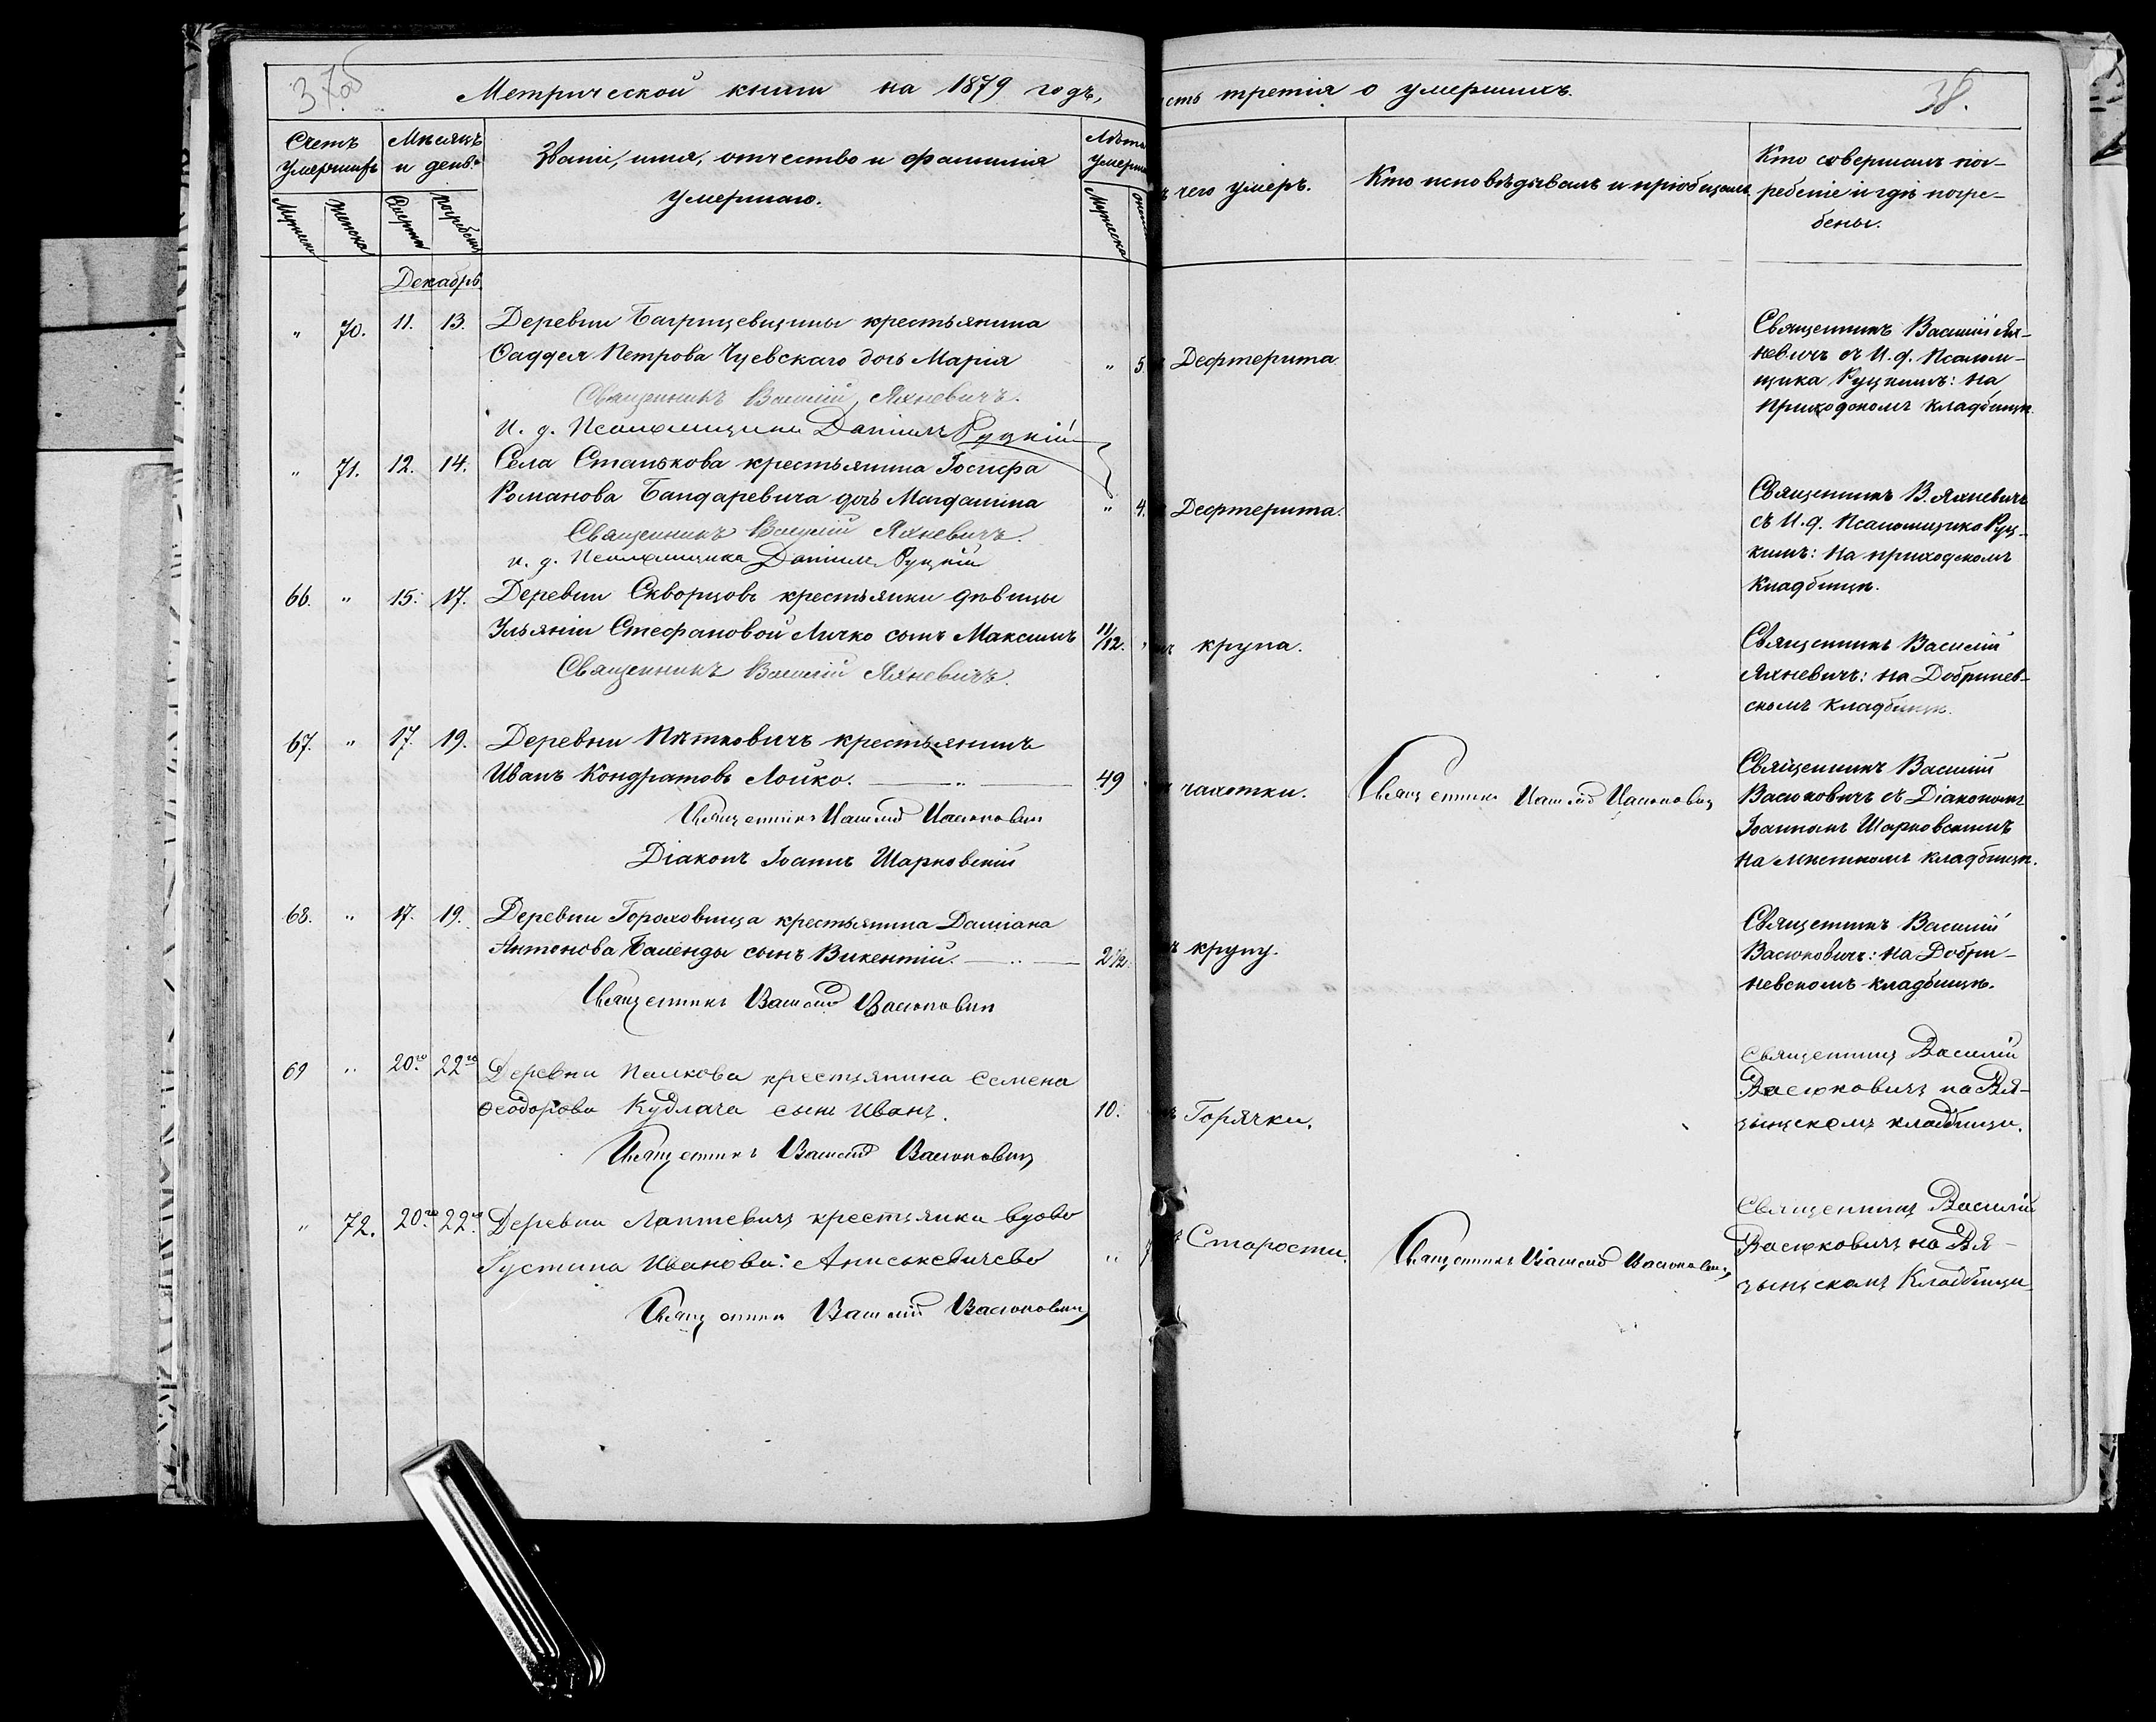 37об
Метрической книги на 1879 годъ,
Счетъ умершихъ
Мѣсяцъ и день
Званіе, имя, отчество и фамилія
умершаго.
Лѣта умерш
Мужеска
Женска
Смерти
Погребенія
Мужеска
Декабрь
" 70. 11. 13. Деревни Багрицевщины крестьянина
Фаддея Петрова Чуевскаго дочь Марія " 5
Священникъ Василій Яхневичъ.
И. д. Псаломщика Даніилъ Руцкій
" 71. 12. 14. Села Станькова крестьянина Іосифа
Романова Бандаревича дочь Магдалина " 4.
Священникъ Василій Яхневичъ.
и. д. Псаломщика Даніилъ Руцкій
66. " 15. 17. Деревни Скворцовъ крестьянки дѣвицы
Ульяніи Стефановой Личко сынъ Максимъ 11/12.
Священникъ Василій Яхневичъ.
67. " 17. 19. Деревни Пѣтковичъ крестьянинъ
Иванъ Кондратовъ Лойко. — " — 49
Священникъ Василій Васюковичъ
Діаконъ Іоаннъ Шарковскій
68. " 17. 19. Деревни Гороховища крестьянина Даміана
Антонова Баленды сынъ Викентій. — " — 2 1/2
Священникъ Василій Васюковичъ
69 " 20го 22го Деревни крестьянина Семена
Феодорова Кудлача сынъ Иванъ. 10.
Священникъ Василій Васюковичъ
" 72. 20го 22го Деревни Лаптевичъ крестьянки вдова
Іустина Иванова Аниськевичева " 7
Священникъ Василій Васюковичъ
38.
сть третія о умершихъ.
ъ чего умеръ.
Кто исповѣдывалъ и пріобщалъ
Кто совершалъ пог-
ребеніе и гдѣ погре-
бены.
Дефтерита
Священникъ Василій Ях-
невичъ съ И. д. Псалом-
щика Руцкимъ: на
Приходскомъ кладбищѣ.
Дефтерита.
Священникъ В. Яхневичъ
съ И. д. Псаломщика Руц-
кимъ: на приходскомъ
кладбищѣ.
крупа.
Священникъ Василій
Яхневичъ: на Добринев-
скомъ кладбищѣ.
чахотки.
Священникъ Василій Васюковичъ
Священникъ Василій
Васюковичъ съ Діакономъ
Іоанномъ Шарковскимъ
на мѣстномъ кладбищѣ.
ъ крупу.
Священникъ Василій
Васюковичъ: на Добри-
невскомъ кладбищѣ.
Горячки.
Священникъ Василій
Васюковичъ на Вя-
зынскомъ кладбищи.
Старости.
Священникъ Василій Васюковичъ
Священникъ Василій
Васюковичъ на Вя-
зынскомъ Кладбищи